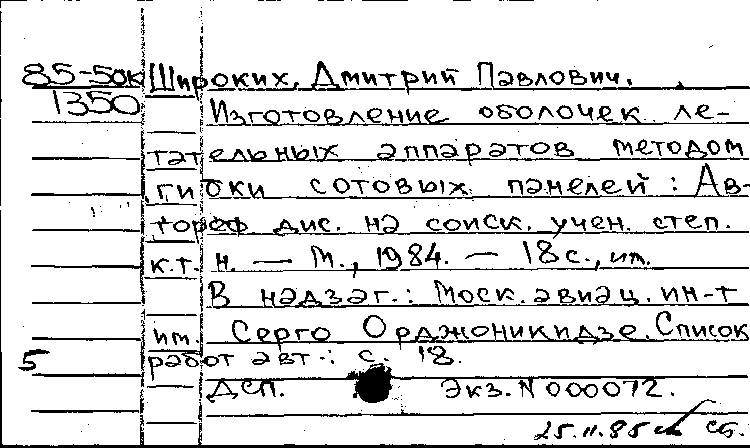 85-50к Широких, Дмитрий Павлович.
1350 Изготовление оболочек ле-
тательных аппаратов методом
гибки сотовых панелей: Ав-
тореф. дис. на соиск. учен. степ.
к.т.н. — М., 1984. — 18 с., ил.
В надзаг.: Моск. авиац. ин-т
им. Серго Орджоникидзе. Список
5 работ авт.: с. 18.
ДСП. Экз. N 000072.
25.11.85